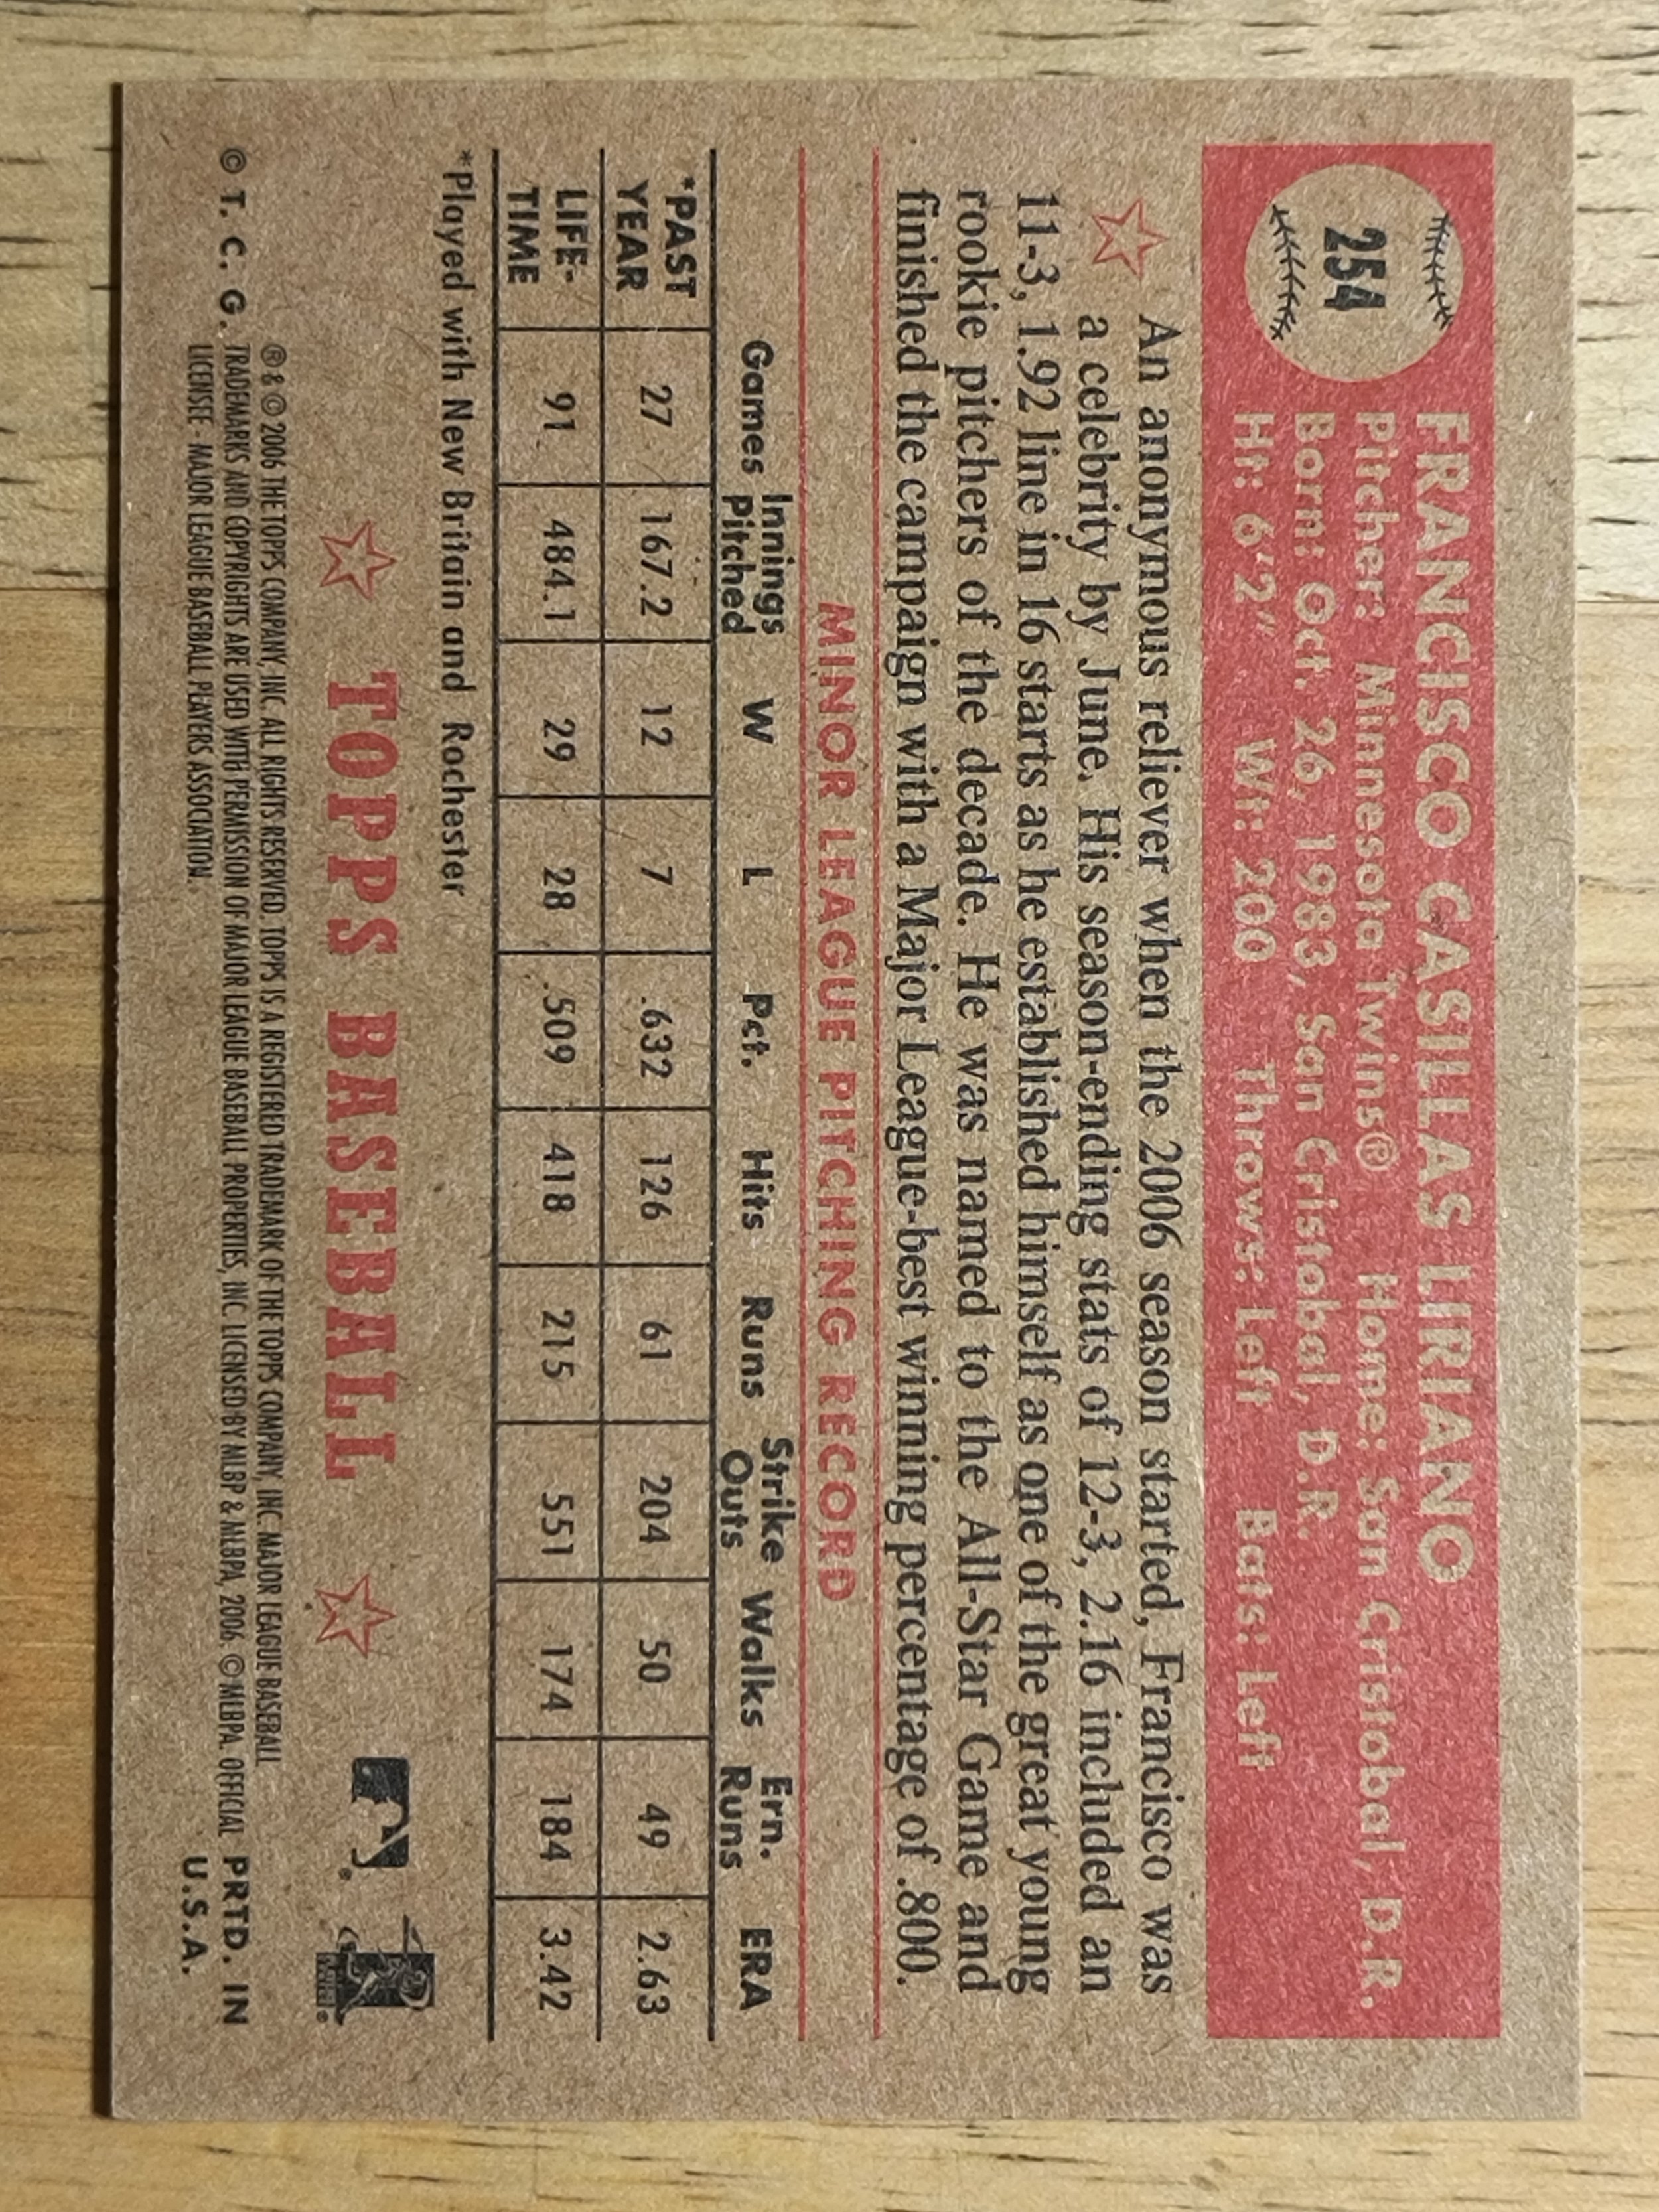 254
FRANCISCO CASILLAS LIRIANO
Pitcher: Minnesota Twins® Home: San Cristobal, D.R.
Born: Oct. 26, 1983, San Cristobal, D.R.
Ht: 6'2" Wt: 200 Throws: Left Bats: Left
An anonymous reliever when the 2006 season started, Francisco was
a celebrity by June. His season-ending stats of 12-3, 2.16 included an
11-3, 1.92 line in 16 starts as he established himself as one of the great young
rookie pitchers of the decade. He was named to the All-Star Game and
finished the campaign with a Major League-best winning percentage of .800.
MINOR LEAGUE PITCHING RECORD
Games Innings Pitched W L Pct. Hits Runs Strike Outs Walks Ern. Runs ERA
*PAST YEAR 27 167.2 12 7 .632 126 61 204 50 49 2.63
LIFE-TIME 91 484.1 29 28 .509 418 215 551 174 184 3.42
*Played with New Britain and Rochester
TOPPS BASEBALL
® & © 2006 THE TOPPS COMPANY, INC. ALL RIGHTS RESERVED. TOPPS IS A REGISTERED TRADEMARK OF THE TOPPS COMPANY, INC. MAJOR LEAGUE BASEBALL
© T. C. G. TRADEMARKS AND COPYRIGHTS ARE USED WITH PERMISSION OF MAJOR LEAGUE BASEBALL PROPERTIES, INC. LICENSED BY MLBP & MLBPA, 2006. © MLBPA. OFFICIAL PRTD. IN
LICENSEE - MAJOR LEAGUE BASEBALL PLAYERS ASSOCIATION. U.S.A.